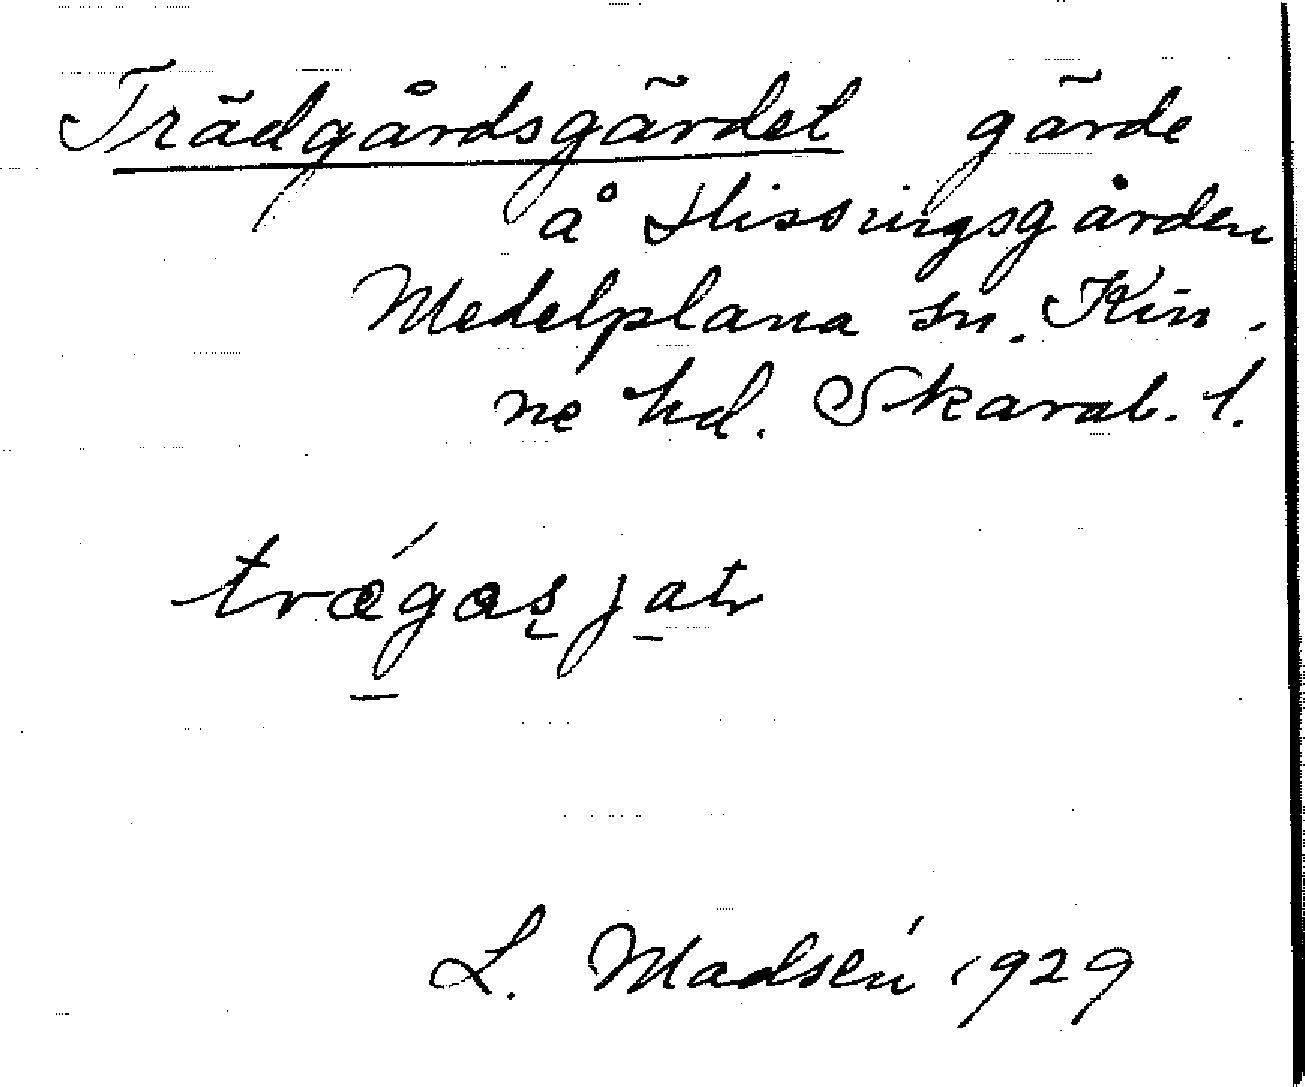 Trädgårdsgärdet gärde
å Hissingsgården
Medelplana sn. Kin-
ne hd. Skarab. l.
L. Madsén 1929